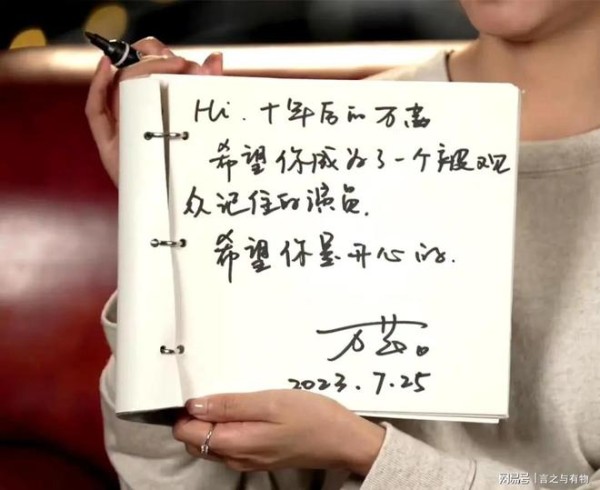 Hi. 十年后的万
希望你成为了一个被观
众记住的演员.
希望你是开心的.
万
2023.7.25
网易号 | 言之与有物